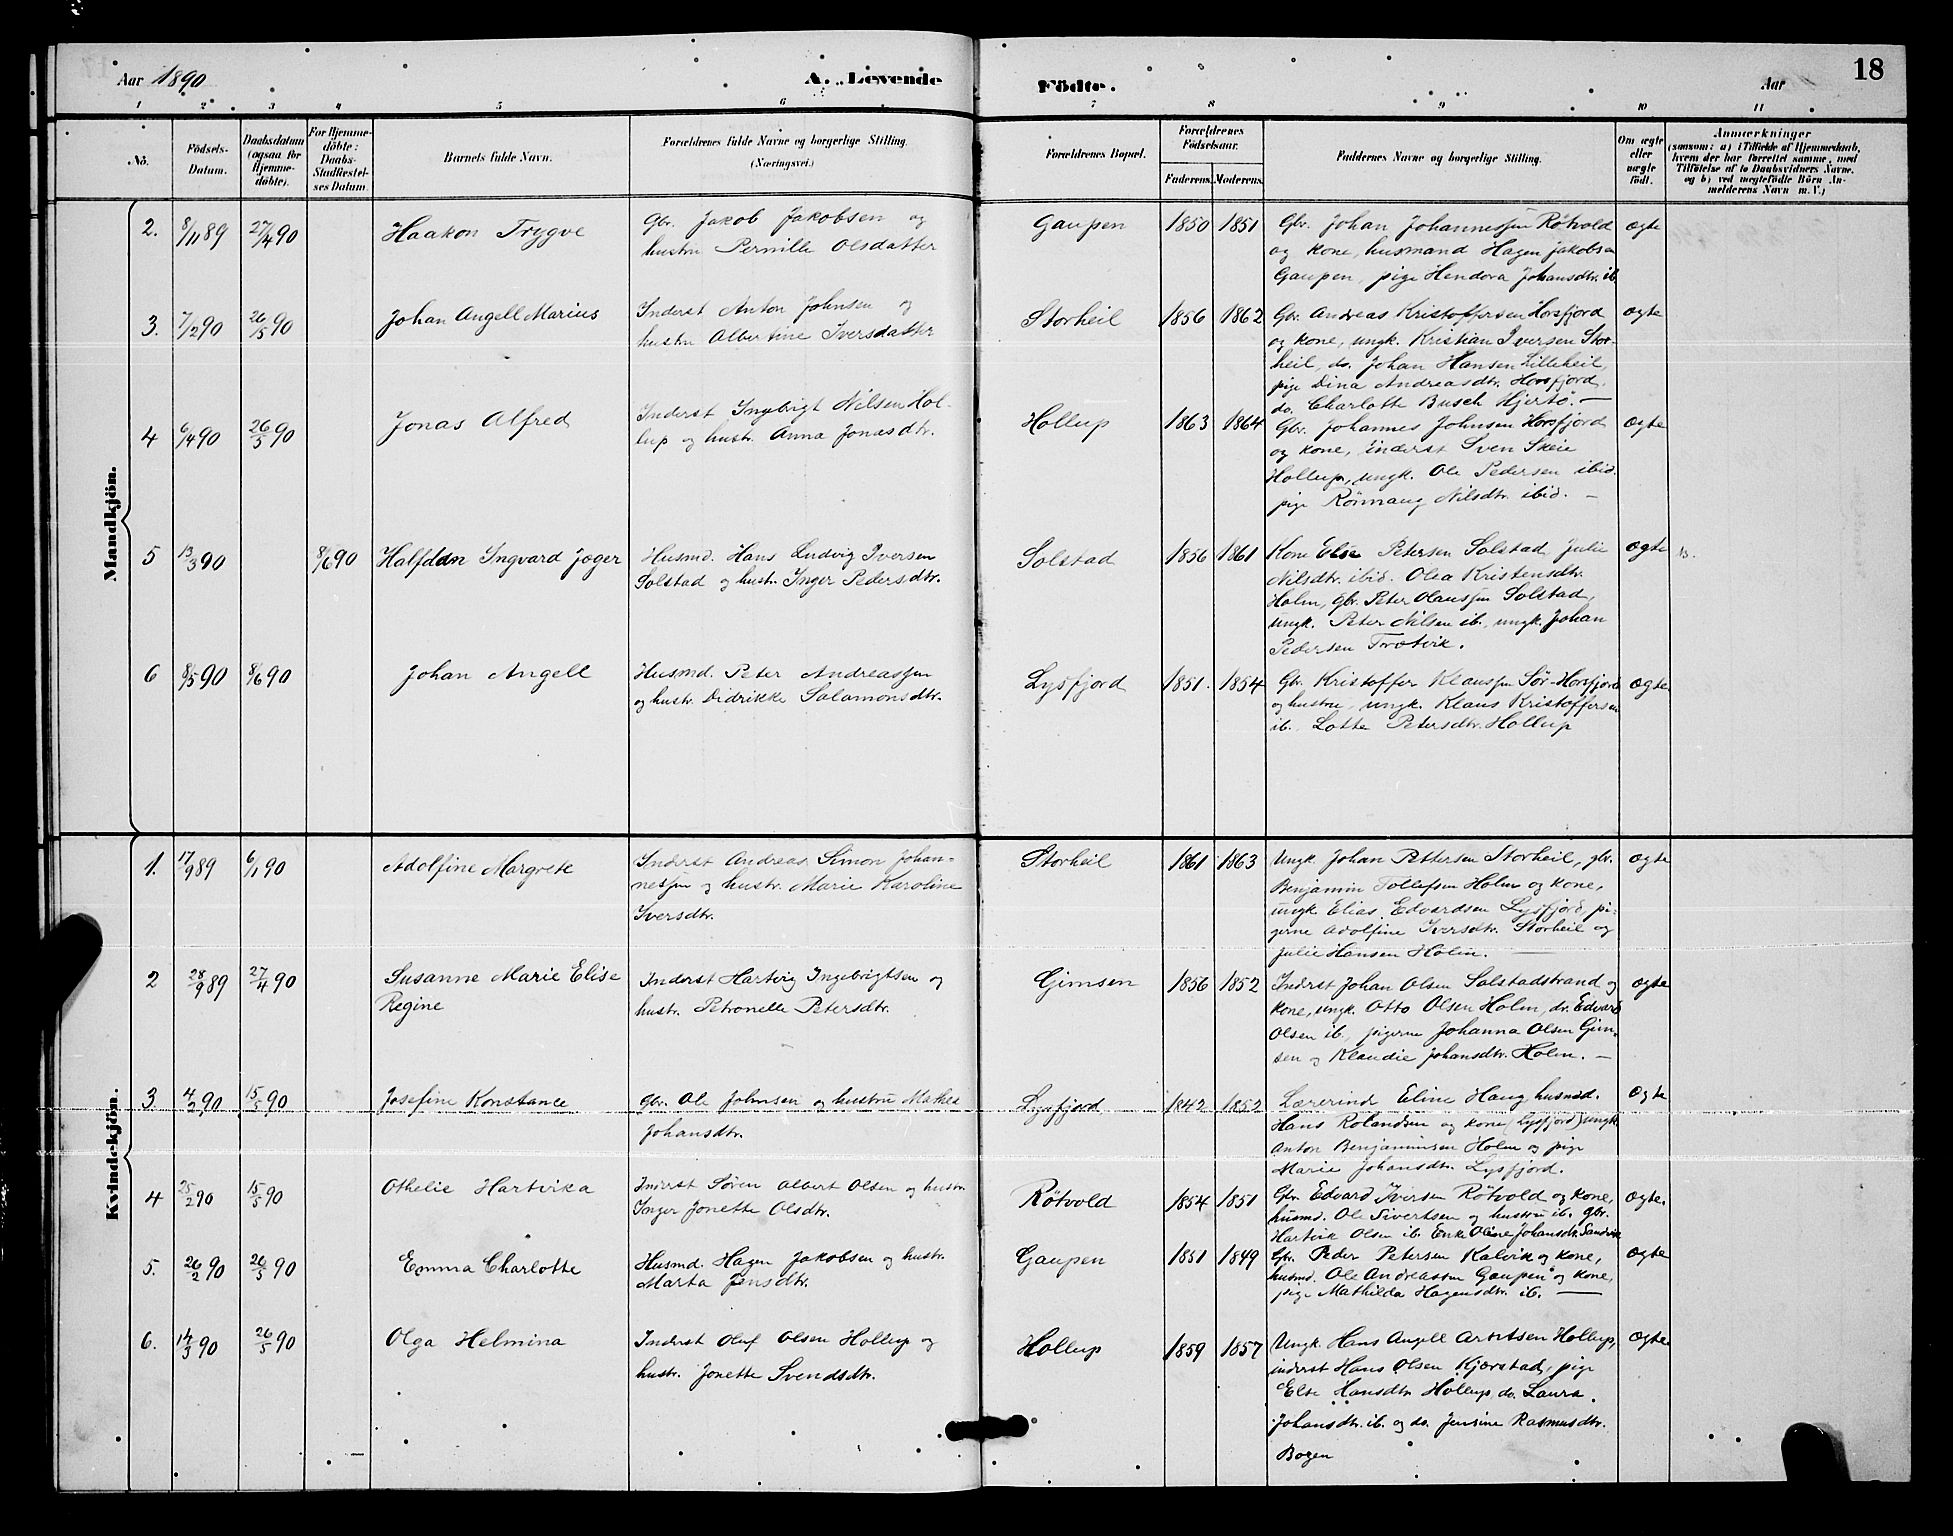 Aar 1890
A. Levende
Födte.
Aar
18
1 2 3 4 5 6 7 8 9 10 11
No.
Födsels-
Datum.
Daabsdatum
(ogsaa for
Hjemme-
döbte).
For Hjemme-
döbte:
Daabs-
Stadfæstel-
ses Datum.
Barnets fulde Navn.
Forældrenes fulde Navne og borgerlige Stilling.
(Næringsvei.)
Forældrenes Bopæl.
Forældrenes
Födselsaar.
Faderens. Moderens.
Faddernes Navne og borgerlige Stilling.
Om ægte
eller
uægte
født.
Anmærkninger
(saasom: a) i Tilfælde af Hjemmedaab,
hvem der har forrettet samme, med
Tilföielse af to Daabsvidners Navne,
og b) ved uægtefödte Börn An-
melderens Navn m. V.)
Mandkjön.
2. 8/11 89 27/4 90 Haakon Trygve
Gbr. Jakob Jakobsen og
hustru Pernille Olsdatter
Gaupen 1850 1851
Gbr. Johan Johannessen Røtvold
og kone, husmand Hagen Jakobsen
Gaupen, pige Hendora Johansdtr. ib.
ægte
3. 7/2 90 26/5 90 Johan Angell Marius
Inderst Anton Johnsen og
hustru Albertine Iversdatter
Storheil 1856 1862
Gbr. Andreas Kristoffersen Horsfjord
og kone, ungk. Kristian Iversen Stor-
heil, do. Johan Hansen Lilleheil,
pige Dina Andreasdtr. Horsfjord,
do. Charlotte Busch Hjertö. —
ægte
4 6/4 90 26/5 90 Jonas Alfred
Inderst Ingebrigt Nilsen Hol-
lup og hustr. Anna Jonasdtr.
Hollup 1863 1864
Gbr. Johannes Johnsen Horsfjord
og kone, inderst Sven Skeie
Hollup, ungk. Ole Pedersen ibid.
pige Rönnaug Nilsdtr. ibid. —
ægte
5 13/3 90 8/6 90 Halfdan Ingvard Jøger
Husmd. Hans Ludvig Iversen
Solstad og hustr. Inger Pedersdtr.
Solstad 1856 1861
Kone Else Petersen Solstad, Julie
Nilsdtr. ibid. Olea Kristensdtr.
Holm, gbr. Peter Olaussen Solstad,
ungk. Peter Nilsen ib., ungk. Johan
Pedersen Trøtvik.
ægte
6 8/5 90 8/6 90 Johan Angell
Husmd. Peter Andreassen
og hustr. Didrikke Salamonsdtr.
Lysfjord 1851. 1854
Gbr. Kristoffer Klaussen Sør-Horsfjord
og hustru, ungk. Klaus Kristoffersen
ib. Lotte Petersdtr. Hollup
ægte
Kvindekjön.
1. 17/9 89 6/1 90 Adolfine Margrete
Inderst Andreas Simon Johan-
nessen og hustr. Marie Karoline
Iversdtr.
Storheil 1861 1863
Ungk. Johan Pettersen Storheil, gbr.
Benjamin Tollefsen Holm og kone,
ungk. Elias Edvardsen Lysfjord, pi-
gerne Adolfine Iversdtr. Storheil og
Julie Hansen Holm. —
ægte
2 28/9 89 27/4 90 Susanne Marie Elise
Regine
Inderst Hartvig Ingebrigtsen og
hustr. Petronelle Petersdtr.
Gimsen 1856 1852
Inderst Johan Olsen Solstadstrand og
kone, ungk. Otto Olsen Holm, do. Edvard
Olsen ib., pigerne Johanna Olsen Gim-
sen og Klaudie Johansdtr. Holm. —
ægte
3 4/2 90 15/5 90 Josefine Konstance
Gbr. Ole Johnsen og hustru
Johansdtr.
Lysfjord 1842 1852
Lærerind Eline Haug, husmd.
Hans Rolandsen og kone (Lysfjord) ungk
Anton Benjaminsen Holm og pige
Marie Johansdtr. Lysfjord.
ægte
4 25/2 90 15/5 90 Othelie Hartvika
Inderst Søren Albert Olsen og hustru
Inger Jonette Olsdtr.
Røtvold 1854 1851
Gbr. Edvard Iversen Røtvold og kone,
husmd. Ole Sivertsen og hustru ib. gbr.
Hartvik Olsen ib. Enke Oline Johansdtr. Sandvik
ægte.
5. 26/2 90 26/5 90 Emma Charlotte
Husmd. Hagen Jakobsen og hustr.
Marta Jensdtr.
Gaupen 1851 1849
Gbr. Peder Petersen Kalvik og kone,
husmd. Ole Andreassen Gaupen og kone,
pige Mathilda Hagensdtr. ib. —
ægte
6. 14/3 90 26/5 90 Olga Helmina
Inderst Oluf Olsen Hollup og
hustr. Jonette Svendsdtr.
Hollup 1859 1857
Ungk. Hans Angell Arntsen Hollup,
inderst Hans Olsen Kjærstad, pige
Else Hansdtr Hollup, do. Laura
Johansdtr. ib. og do. Jensine Rasmusdtr.
Bogen
ægte